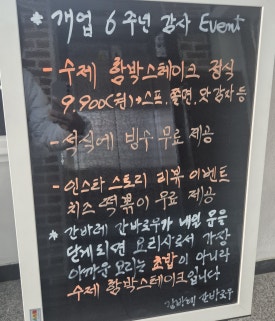 * 개업 6주년 감사 Event
- 수제 함박스테이크 정식
9,900(원)→스프, 쫄면, 맛감자 등
- 석식에 빙수 무료 제공
- 인스타 스토리 리뷰 이벤트
치즈 떡볶이 무료 제공
* 간바레 간바로우가 내일 문을
닫게되면 요리사로서 가장
아까운 요리는 초밥이 아니라
수제 함박스테이크입니다
간바레 간바로우